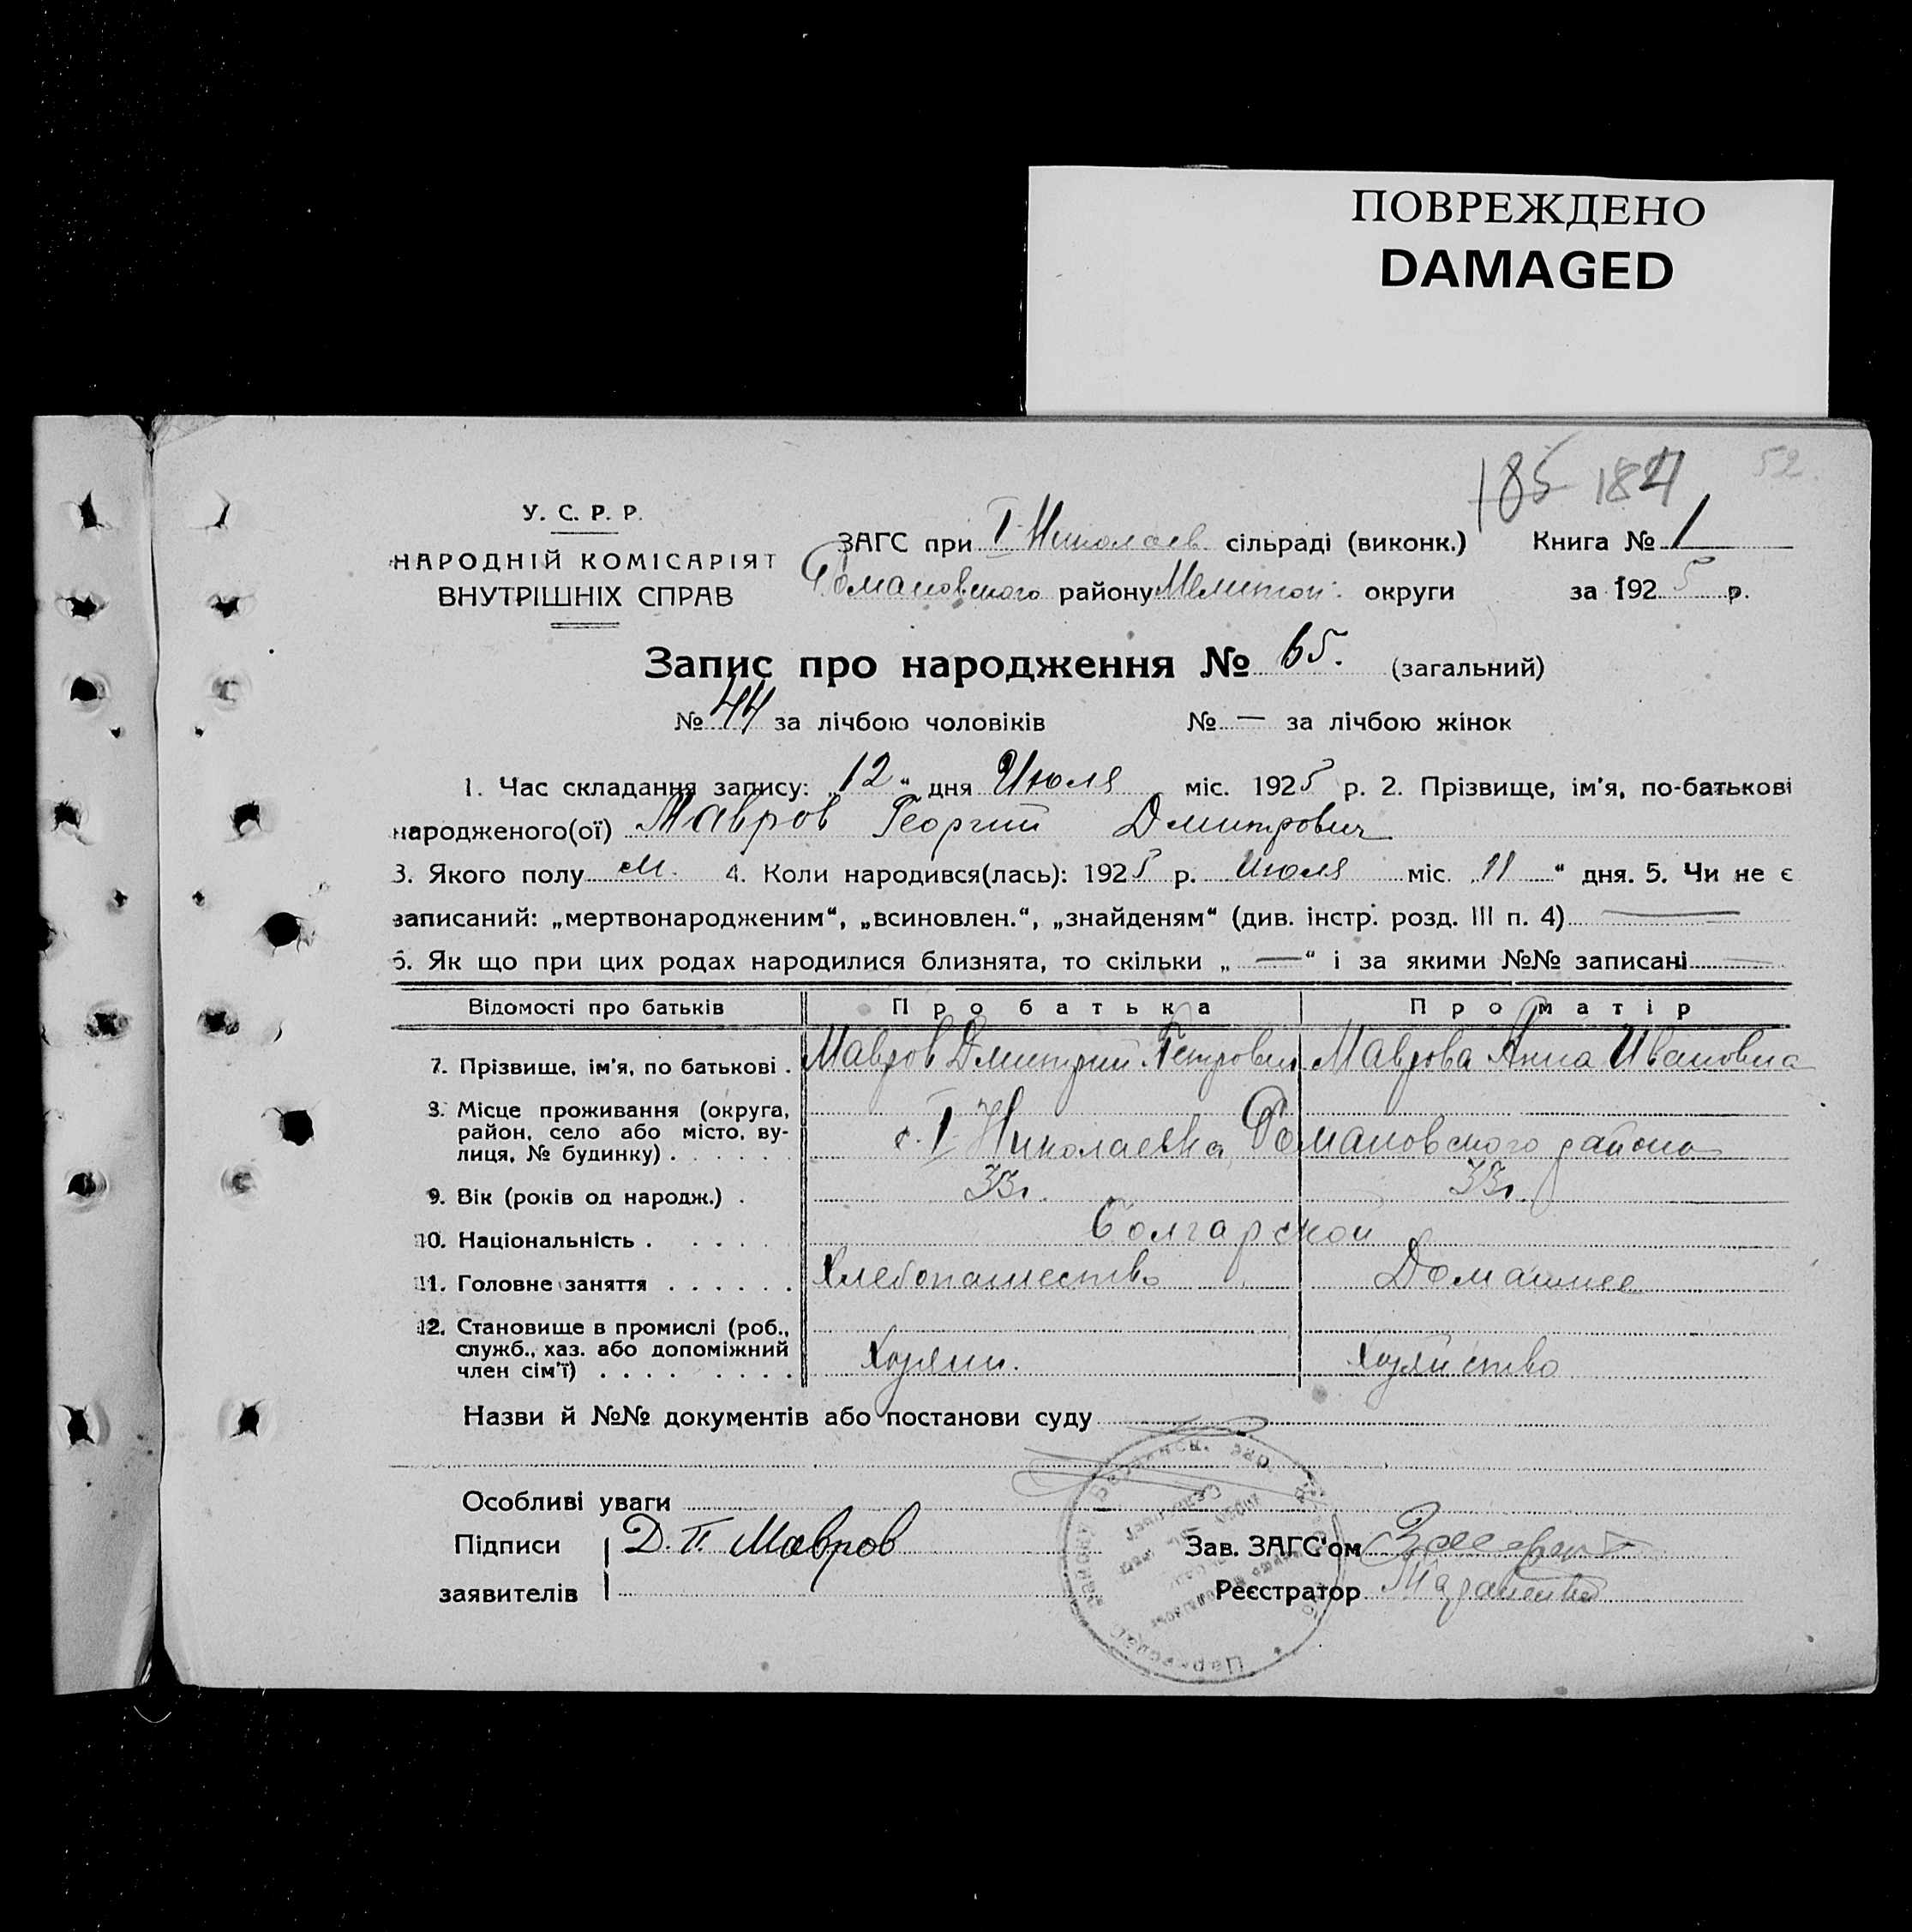 ПОВРЕЖДЕНО
DAMAGED
185 184 52
У. С. Р. Р.
НАРОДНІЙ КОМІСАРІЯТ
ВНУТРІШНІХ СПРАВ
ЗАГС при I Николаев сільраді (виконк.) Книга № 1
Романовского району Мелитоп. округи за 1925 р.
Запис про народження № 65. (загальний)
№ 44 за лічбою чоловіків № — за лічбою жінок
1. Час складання запису: „12“ дня Июля міс. 1925 р. 2. Прізвище, ім'я, по-батькові
народженого(ої) Мавров Георгий Дмитрович
3. Якого полу м. 4. Коли народився(лась): 1925 р. Июля міс. „11“ дня. 5. Чи не є
записаний: „мертвонародженим“, „всиновлен.“, „знайденям“ (див. інстр. розд. III п. 4) —
6. Як що при цих родах народилися близнята, то скільки „—“ і за якими №№ записані —
Відомості про батьків Про батька Про матір
7. Прізвище, ім'я, по батькові . Мавров Дмитрий Петрович Маврова Анна Ивановна
8. Місце проживання (округа,
район, село або місто, ву-
лиця, № будинку) . . . . . . с. I Николаевка, Романовского района
9. Вік (років од народж.) . 33г. 33г.
10. Національність . . . . . Болгарской
11. Головне заняття . . . . . . Хлебопашество Домашнее
12. Становище в промислі (роб.,
служб., хаз. або допоміжний
член сім'ї) . . . . . . . . Хозяин. Хозяйство
Назви й №№ документів або постанови суду
Особливі уваги
Підписи Д. П. Мавров Зав. ЗАГС'ом
заявителів Реєстратор